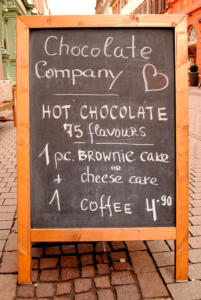 Chocolate
Company
HOT CHOCOLATE
75 flavours
1 pc. BROWNIE CAKE
or
+ cheese cake
1 COFFEE 4.90